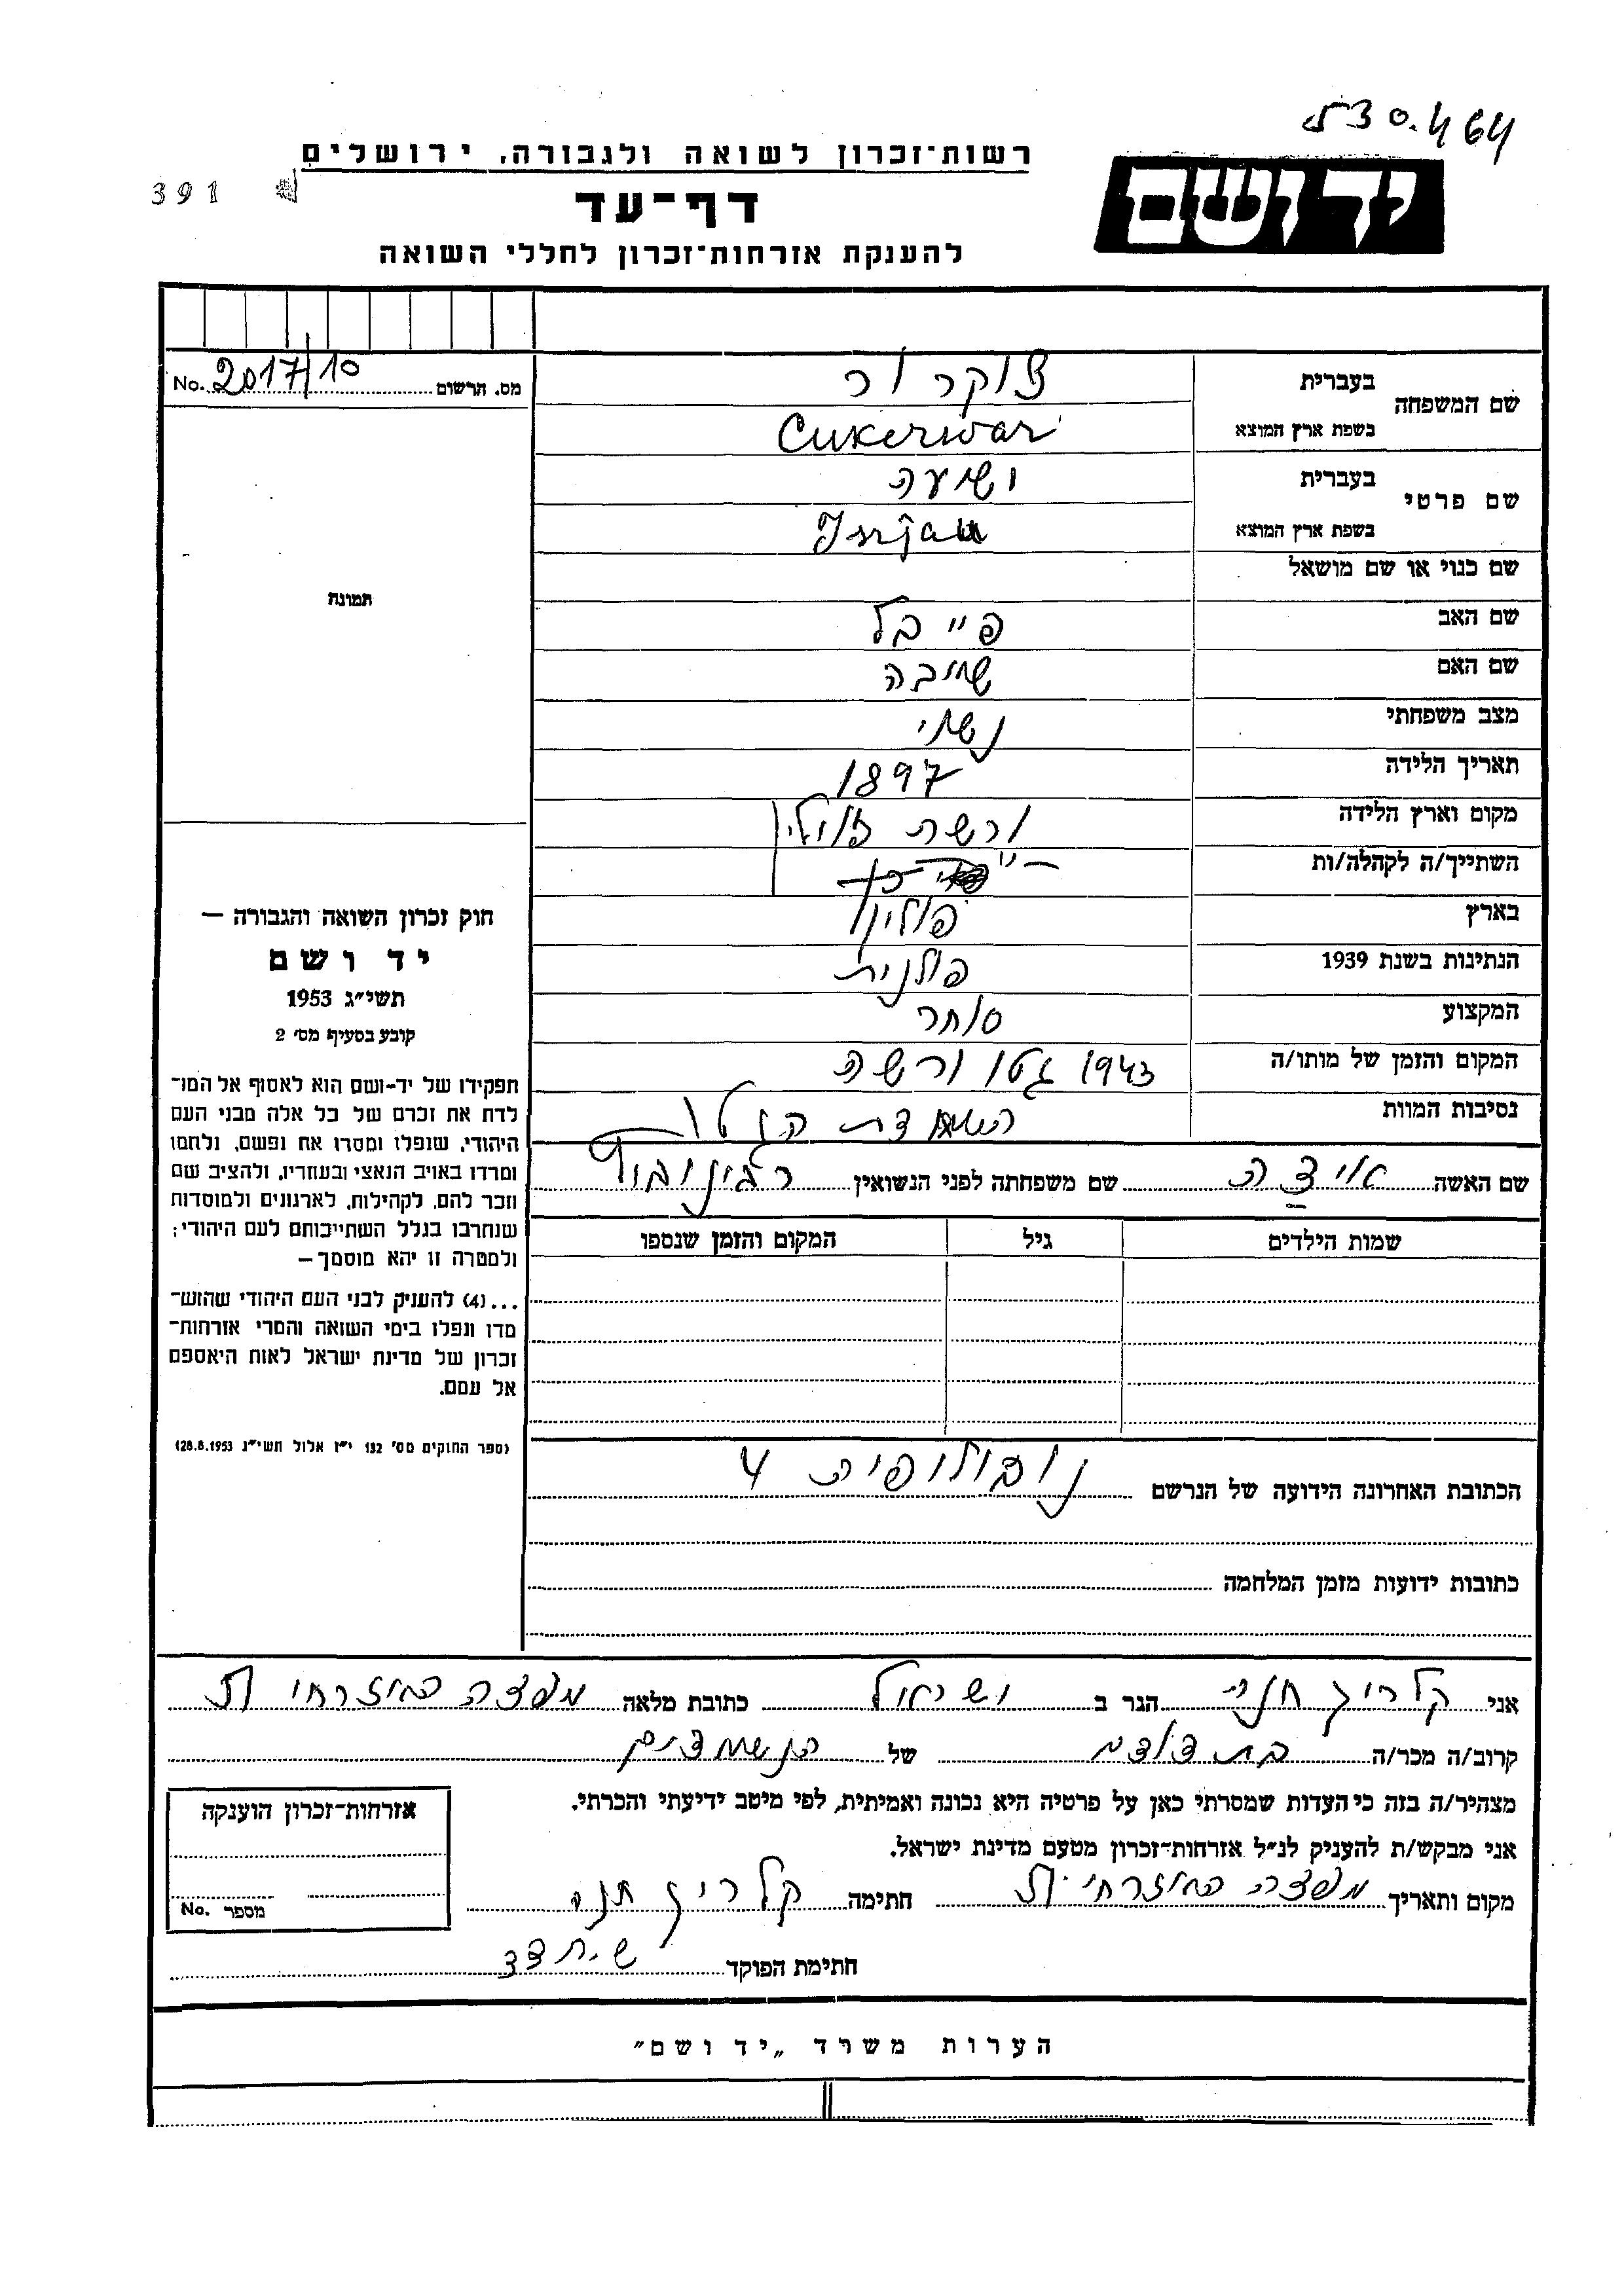 530.464
391
רשות־זכרון לשואה ולגבורה, ירושלים
יד ושם
דף־עד
להענקת אזרחות־זכרון לחללי השואה
מס. תרשום No. 2017/10
תמונה
שם המשפחה בעברית צוקרור
בשפת ארץ המוצא Cukerwar
שם פרטי בעברית ישעיה
בשפת ארץ המוצא
שם כנוי או שם מושאל
שם האב פייבל
שם האם
מצב משפחתי נשוי
תאריך הלידה 1897
מקום וארץ הלידה ורשה
השתייך/ה לקהלה/ות
בארץ פולין
הנתינות בשנת 1939 פולנית
המקצוע סוחר
המקום והזמן של מותו/ה 1943 גטו ורשה
נסיבות המוות השמדת הגטו
שם האשה איצה שם משפחתה לפני הנשואין
שמות הילדים גיל המקום והזמן שנספו
חוק זכרון השואה והגבורה —
יד ושם
תשי״ג 1953
קובע בסעיף מס׳ 2
תפקידו של יד־ושם הוא לאסוף אל המו־
לדת את זכרם של כל אלה מבני העם
היהודי, שנפלו ומסרו את נפשם, נלחמו
ומרדו באויב הנאצי ובעוזריו, ולהציב שם
וזכר להם, לקהילות, לארגונים ולמוסדות
שנחרבו בגלל השתייכותם לעם היהודי;
ולמטרה זו יהא מוסמך —
...(4) להעניק לבני העם היהודי שהוש־
מדו ונפלו בימי השואה והמרי אזרחות־
זכרון של מדינת ישראל לאות היאספם
אל עמם.
(ספר החוקים מס׳ 132 י״ז אלול תשי״ג 28.8.1953)
הכתובת האחרונה הידועה של הנרשם נובוליפית 4
כתובות ידועות מזמן המלחמה
אני קלריך חנה הגר ב ישראל כתובת מלאה מצפה המזרחי
קרוב/ה מכר/ה בת דודה של הנשמדים
מצהיר/ה בזה כי העדות שמסרתי כאן על פרטיה היא נכונה ואמיתית, לפי מיטב ידיעתי והכרתי.
אני מבקש/ת להעניק לנ״ל אזרחות־זכרון מטעם מדינת ישראל.
מקום ותאריך המזרחי חתימה קלריך חנה
חתימת הפוקד
אזרחות־זכרון הוענקה
מספר No.
הערות משרד „יד ושם״